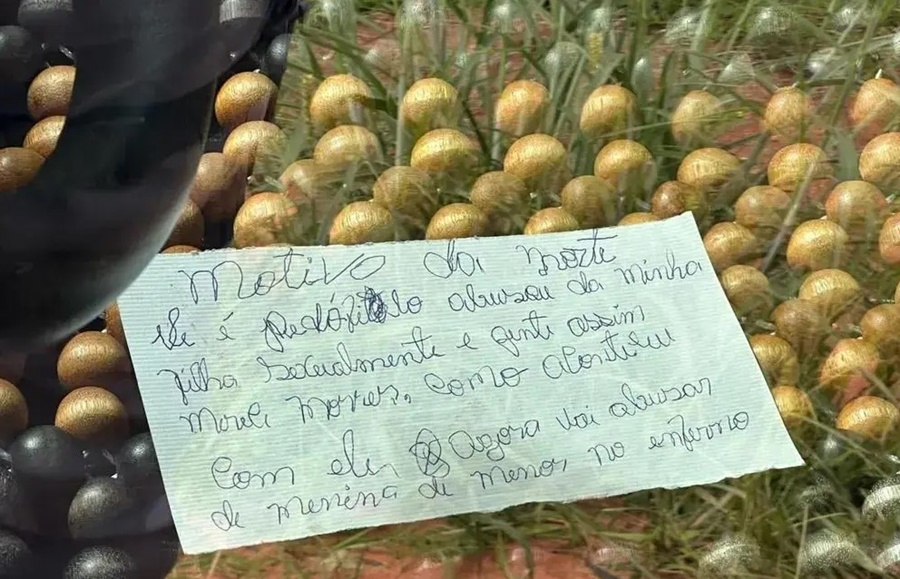 Motivo da morte
Ele é pedófilo abusou da minha
filha sexualmente e gente assim
mereci morrer, como aconteceu
com ele Agora vai abusar
de menina de menor no inferno